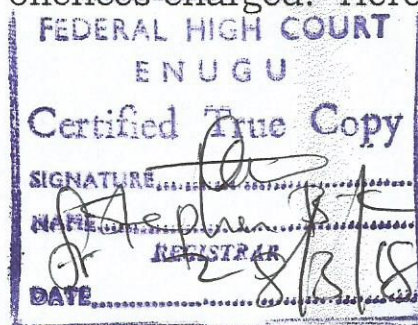 offences charged. Here
FEDERAL HIGH COURT
ENUGU
Certified True Copy
SIGNATURE
NAME Stephen
REGISTRAR
DATE 28/3/18